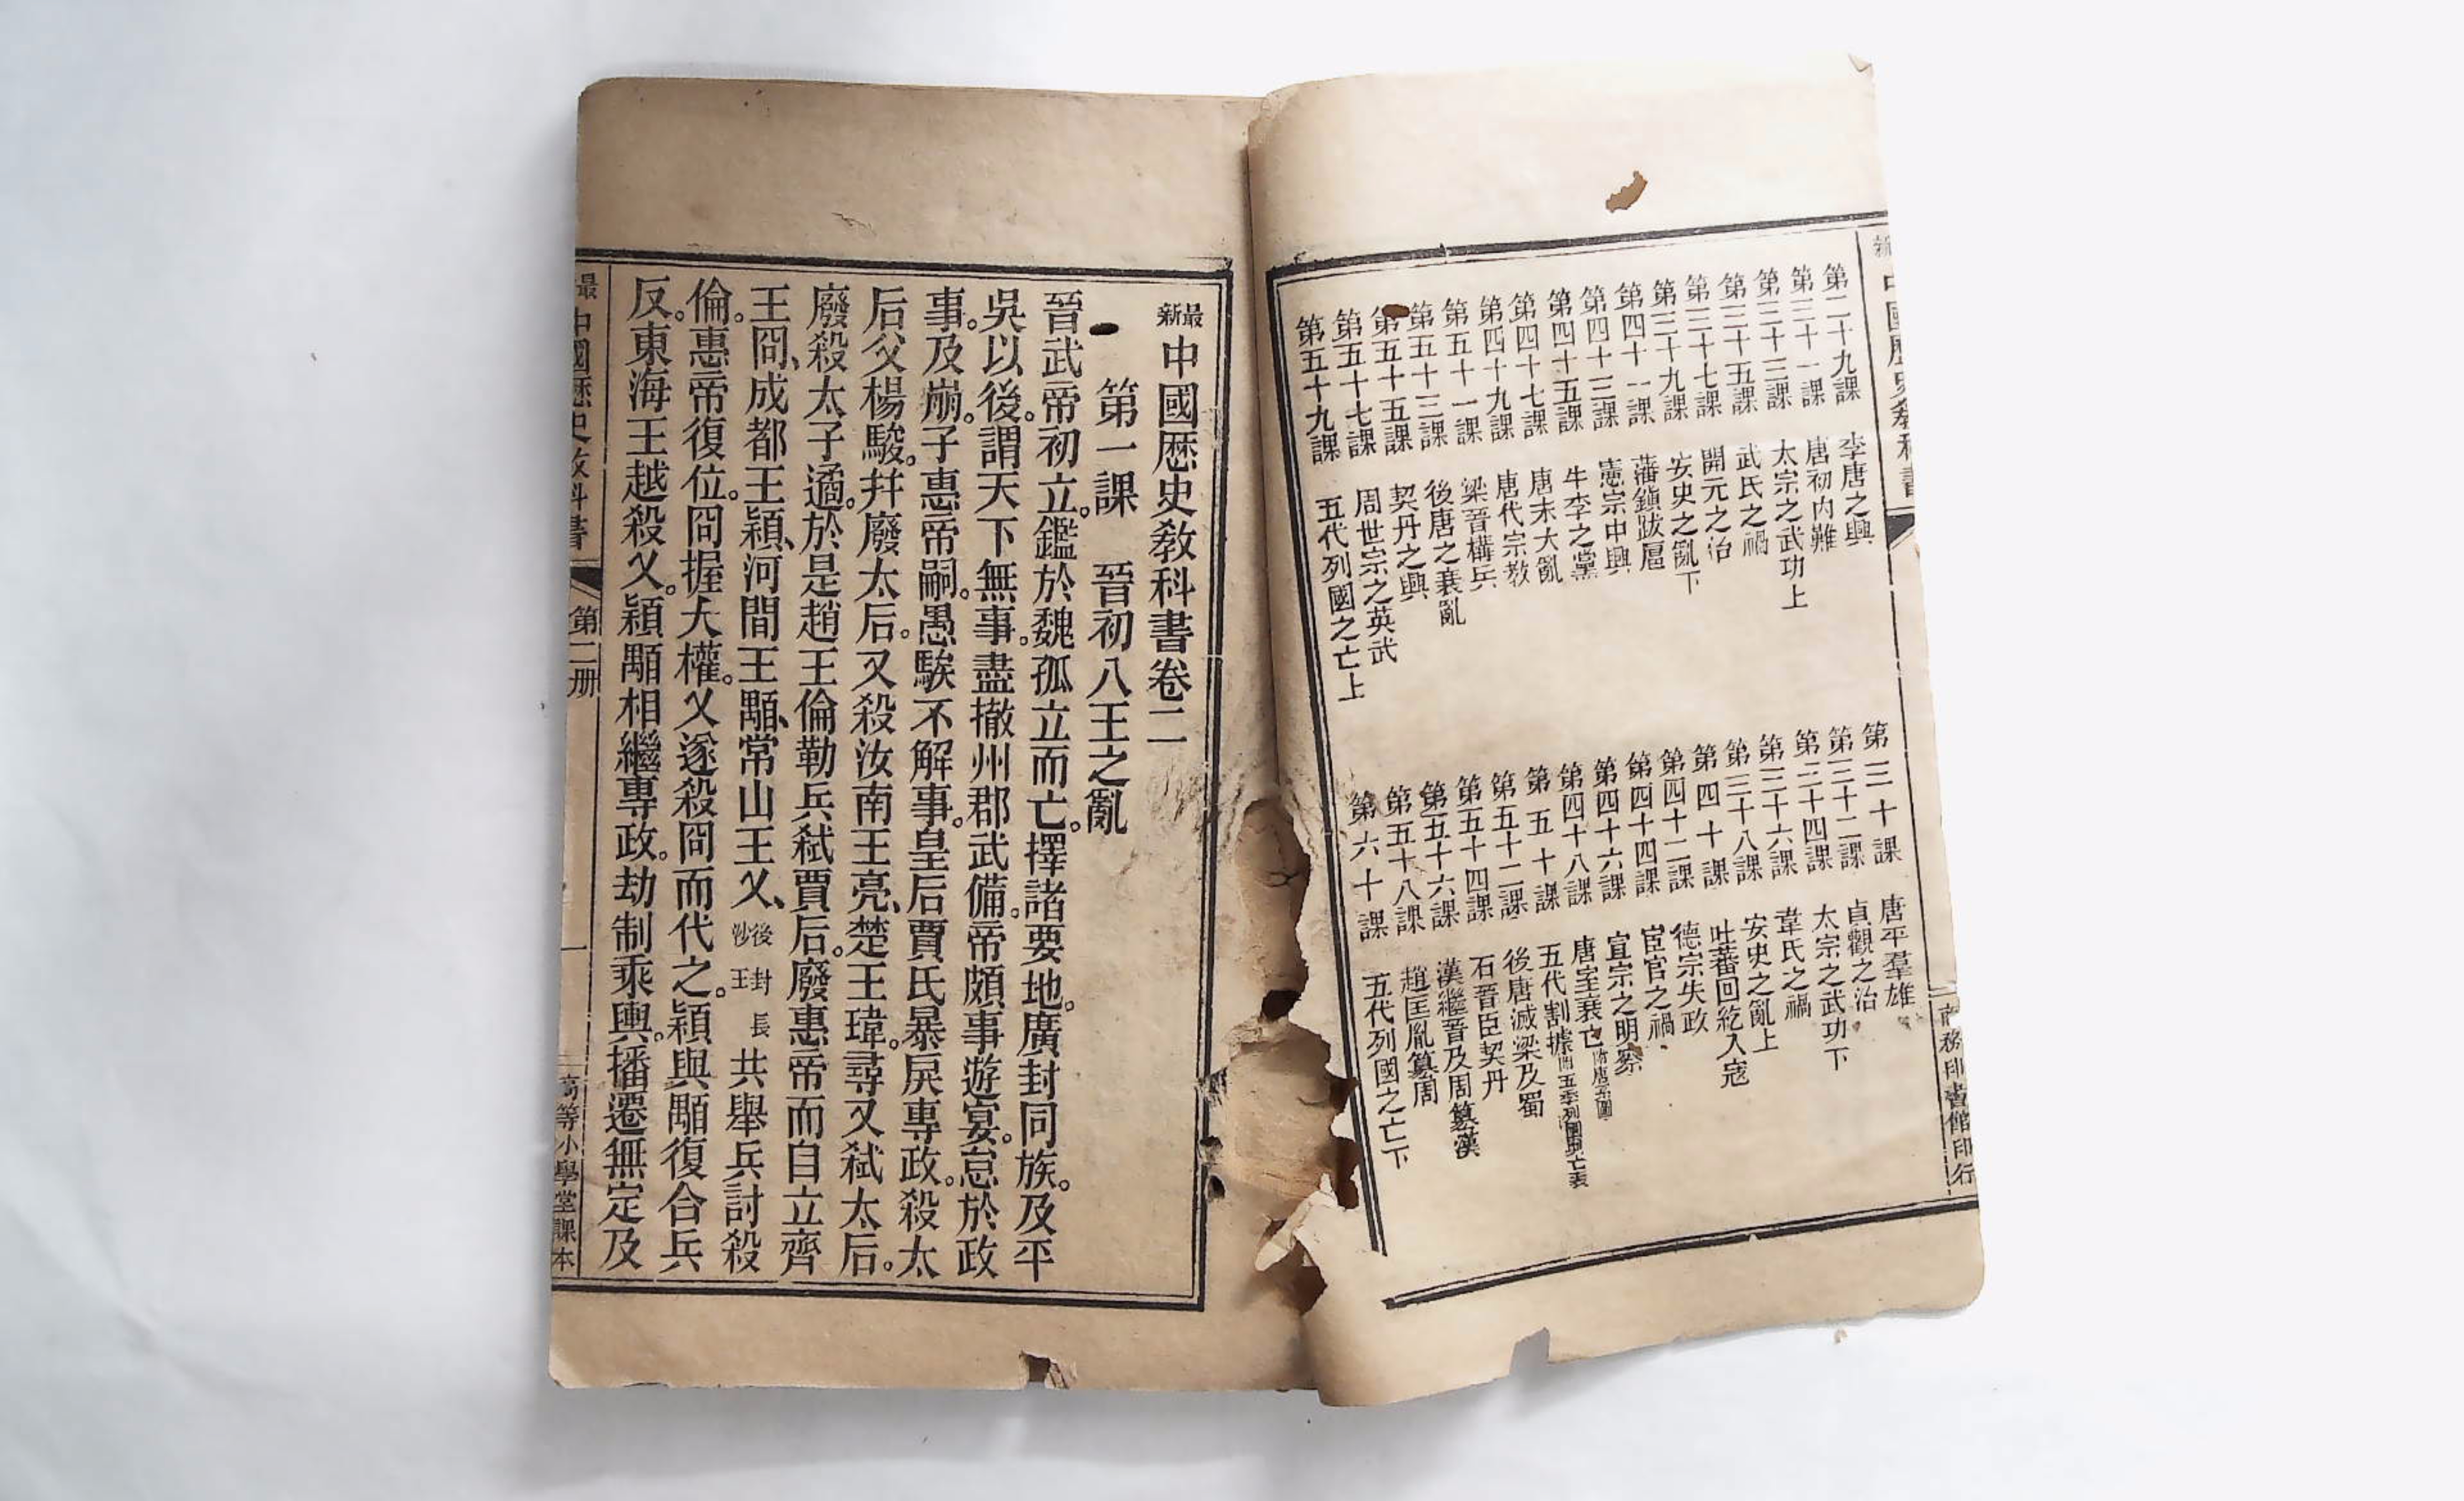 中國歷史教科書
商務印書館印行
第二十九課 李唐之興
第三十課 唐平羣雄
第三十一課 唐初内難
第三十二課 貞觀之治
第三十三課 太宗之武功上
第三十四課 太宗之武功下
第三十五課 武氏之禍
第三十六課 韋氏之禍
第三十七課 開元之治
第三十八課 安史之亂上
第三十九課 安史之亂下
第四十課 吐蕃回紇入寇
第四十一課 藩鎭跋扈
第四十二課 德宗失政
第四十三課 憲宗中興
第四十四課 宦官之禍
第四十五課 牛李之黨
第四十六課 宣宗之明察
第四十七課 唐末大亂
第四十八課 唐室衰亡
第四十九課 唐代宗教
第五十課 五代割據
第五十一課 梁晉構兵
第五十二課 後唐滅梁及蜀
第五十三課 後唐之衰亂
第五十四課 石晉臣契丹
第五十五課 契丹之興
第五十六課 漢繼晉及周簒漢
第五十七課 周世宗之英武
第五十八課 趙匡胤簒周
第五十九課 五代列國之亡上
第六十課 五代列國之亡下
最新中國歷史教科書卷二
第一課 晉初八王之亂
晉武帝初立。鑑於魏孤立而亡。擇諸要地。廣封同族。及平
吳以後。謂天下無事。盡撤州郡武備。帝頗事遊宴。怠於政
事。及崩。子惠帝嗣。愚騃不解事。皇后賈氏暴戾專政。殺太
后父楊駿。幷廢太后。又殺汝南王亮、楚王瑋。尋又弑太后。
廢殺太子遹。於是趙王倫勒兵弑賈后。廢惠帝而自立齊
王冏、成都王穎、河間王顒、常山王乂、後封長沙王共舉兵討殺
倫。惠帝復位。冏握大權。乂遂殺冏而代之。穎與顒復合兵
反。東海王越殺乂。穎顒相繼專政。劫制乘輿。播遷無定及
最新中國歷史教科書 第二册 一 高等小學堂課本